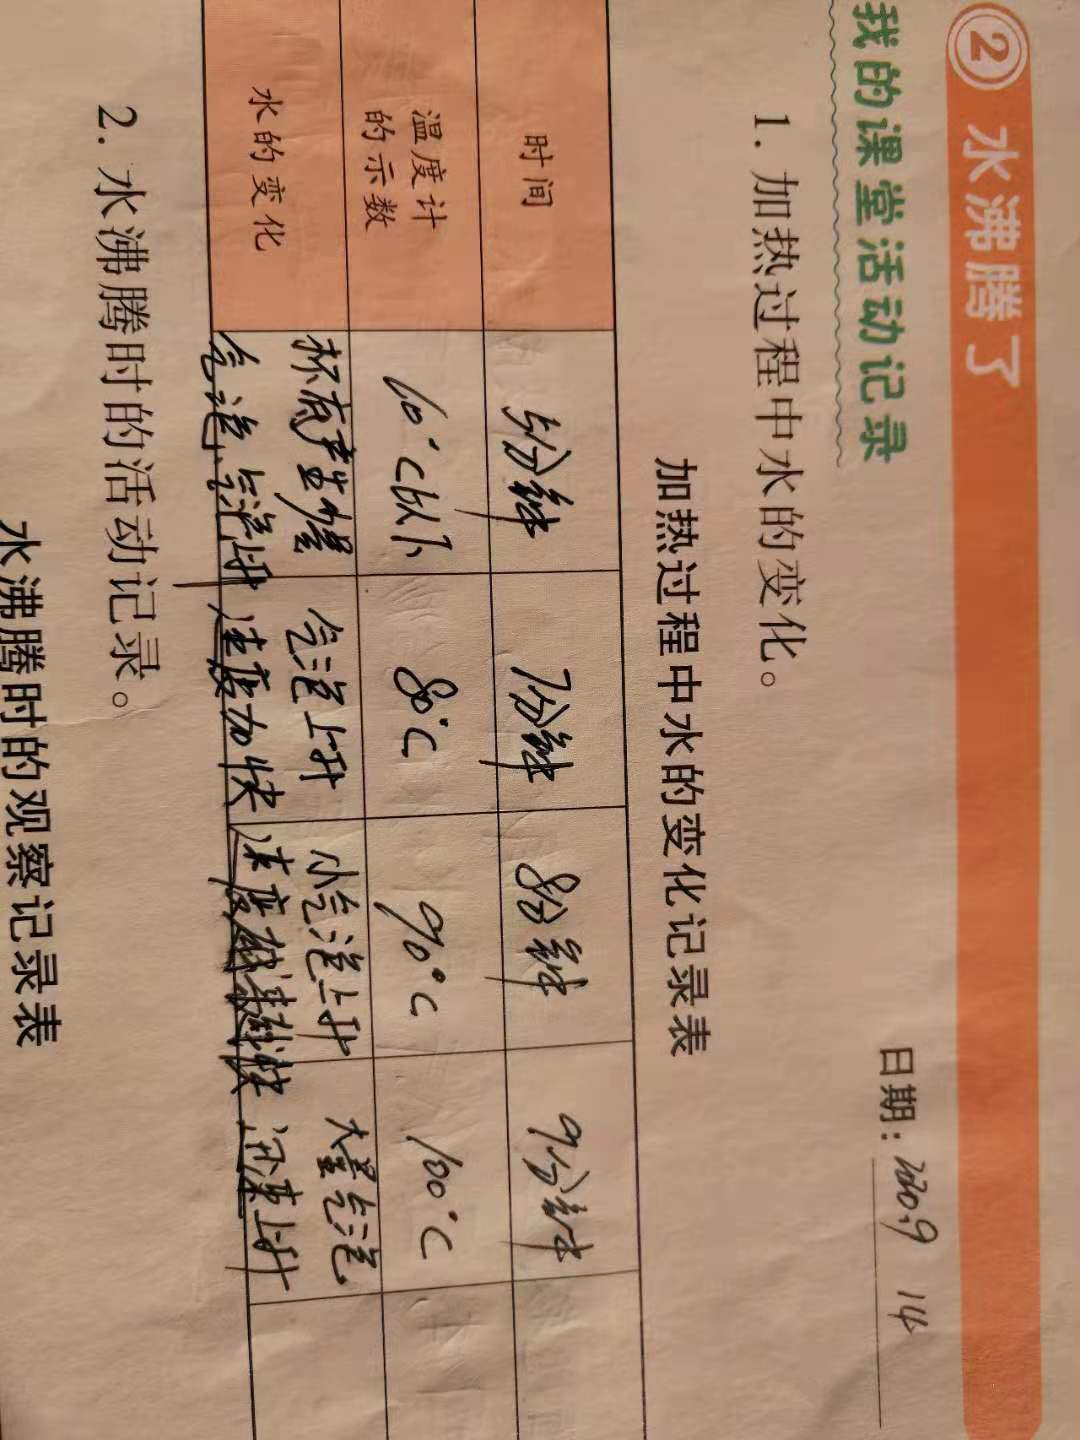 ② 水沸腾了
我的课堂活动记录
日期: 2020.9 14
1. 加热过程中水的变化。
加热过程中水的变化记录表
时间 5分钟 7分钟 8分钟 9分钟
温度计的示数 60°C以下 80°C 90°C 100°C
水的变化 杯底产生少量气泡、气泡上升 气泡上升速度加快 小气泡上升速度越来越快 大量气泡迅速上升
2. 水沸腾时的活动记录。
水沸腾时的观察记录表